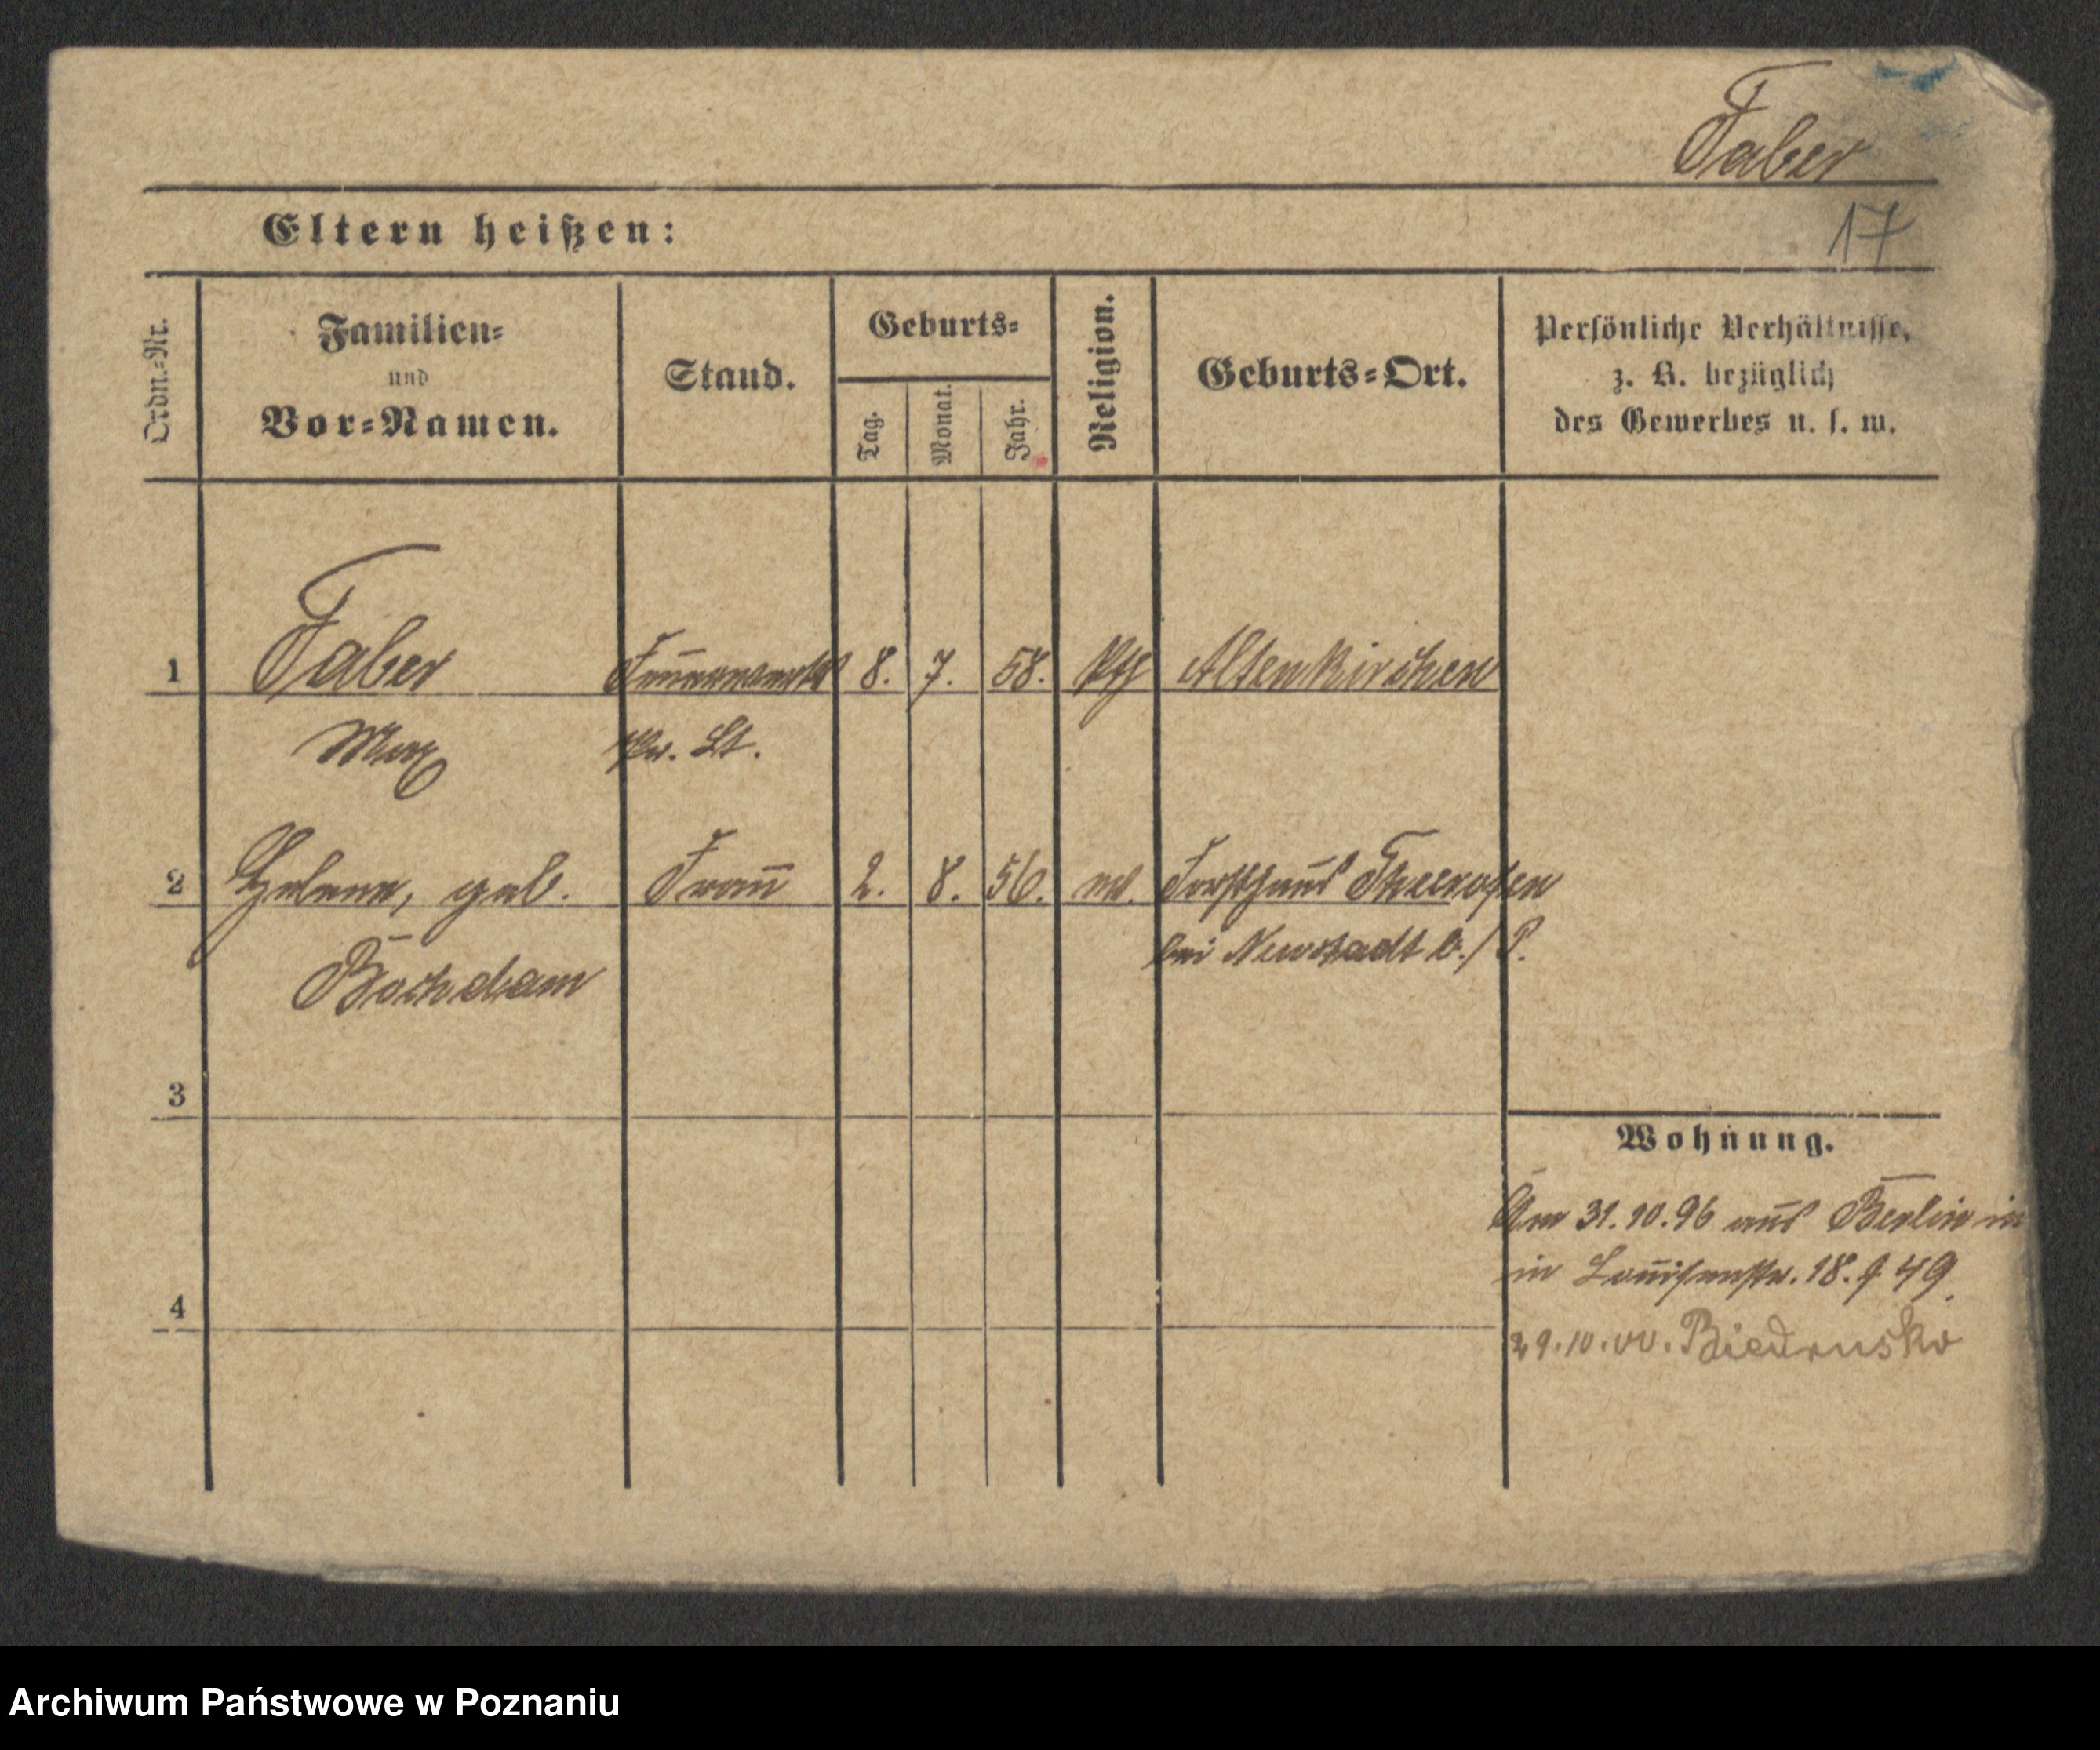 Faber
17
Eltern heißen:
Ordn.-Nr.
Familien-
und
Vor-Namen.
Stand.
Geburts-
Tag.
Monat.
Jahr.
Religion.
Geburts-Ort.
Persönliche Verhältnisse,
z. B. bezüglich
des Gewerbes u. s. w.
1 Faber 8. 7. 58. Altenkirchen
Max Pr. Lt.
2 Helene, geb. Frau 2. 8. 56. ev. Forsthaus
bei Neustadt b./P.
3
4
Wohnung.
Am 31.10.96 aus Berlin in
in Louisenstr. 18.
29.10.00. Biedrusko
Archiwum Państwowe w Poznaniu